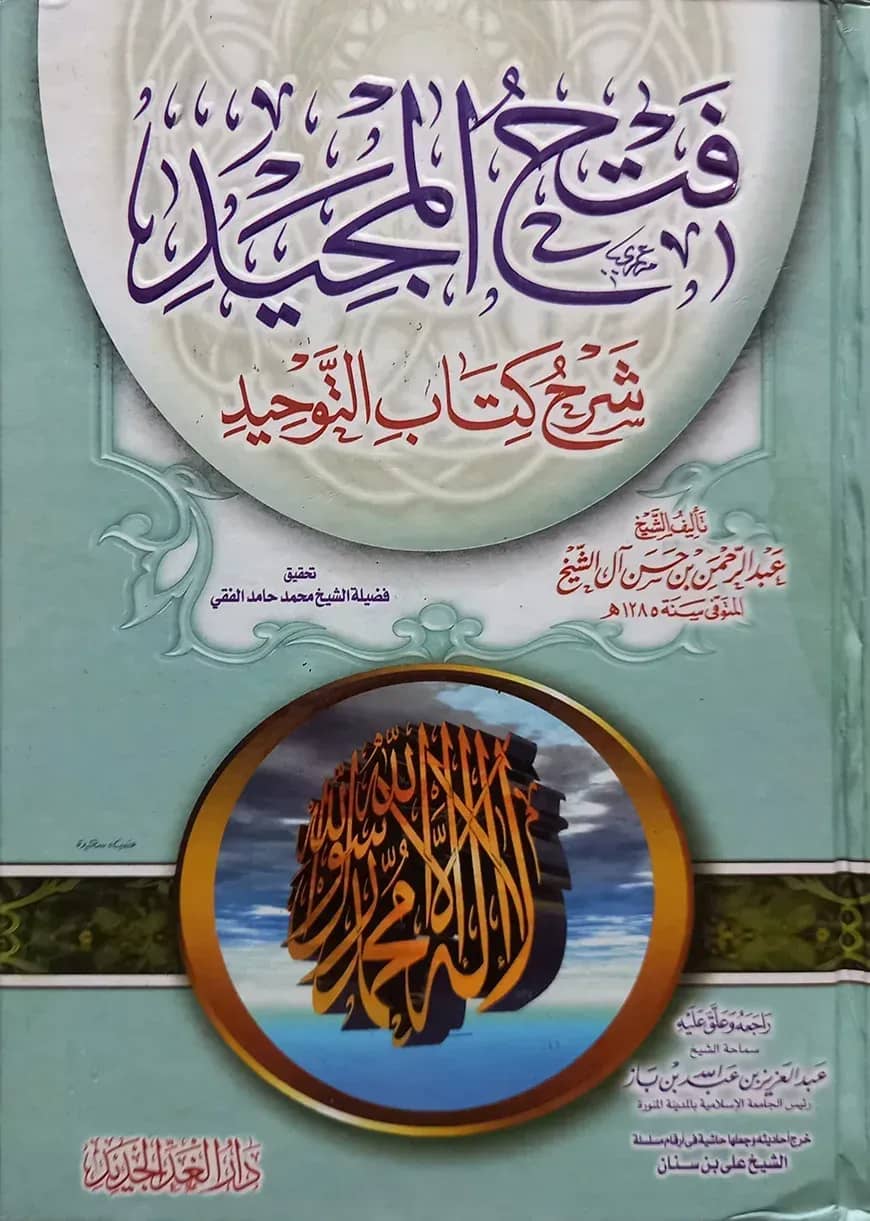 فَتْحُ المَجِيدِ
شَرْحُ كِتَابِ التَّوْحِيدِ
تَأليفُ الشَّيْخ
عَبْدِ الرَّحْمٰنِ بْنِ حَسَنِ آلِ الشَّيْخ
المتوَفى سَنَة ١٢٨٥ هـ
تحقيق
فضيلة الشيخ محمد حامد الفقي
لا إله إلا الله محمد رسول الله
رَاجَعَهُ وَعَلَّقَ عَلَيْهِ
سماحة الشيخ
عَبد العَزيز بن عَبد الله بن بَاز
رئيس الجامعة الإسلامية بالمدينة المنورة
خرج أحاديثه وجعلها حاشية في أرقام سلسلة
الشيخ علي بن سنان
دَارُ الغَدِ الجَدِيد